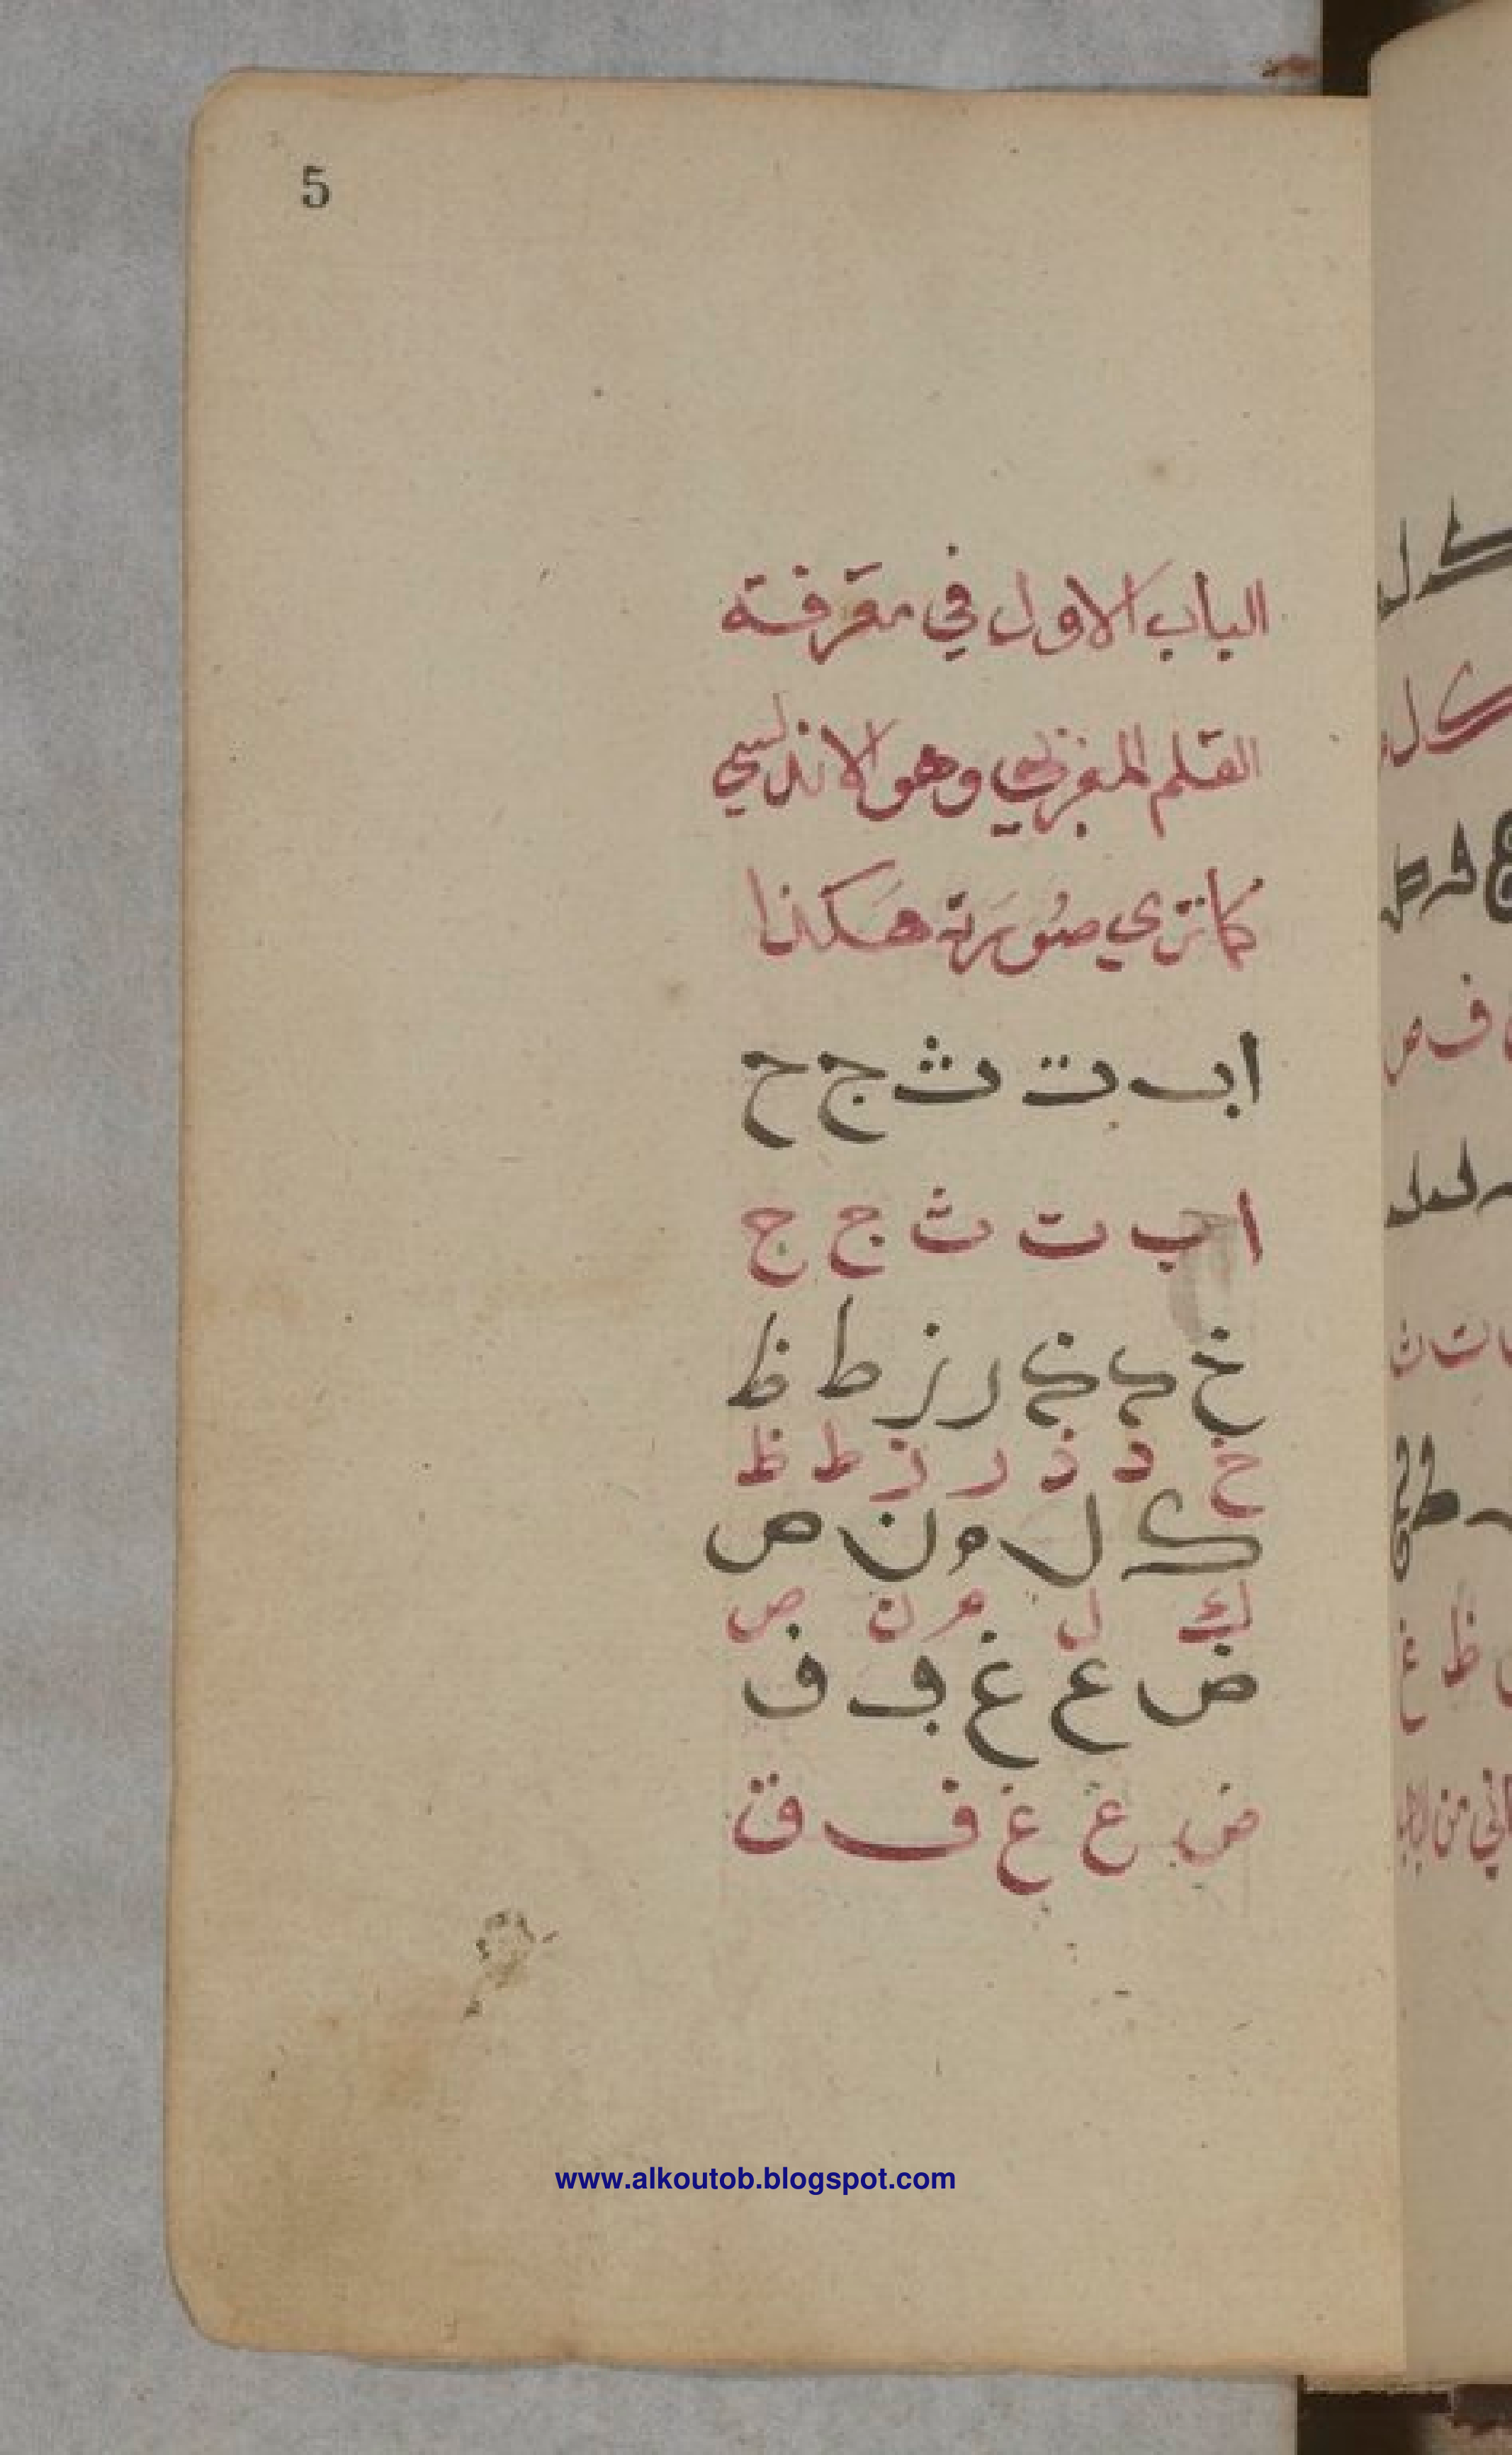 5
الباب الاول في معرفة
القلم المغربي وهو الاندلسي
كما تري صورة هكذا
ا ب ت ث ج ح
ا ب ت ث ج ج
خ د ذ ر ز ط ظ
خ د ذ ر ز ط ظ
ك ل م ن ص
ك ل م ن ص
ض ع غ ڢ ف
ض ع غ ف ق
www.alkoutob.blogspot.com